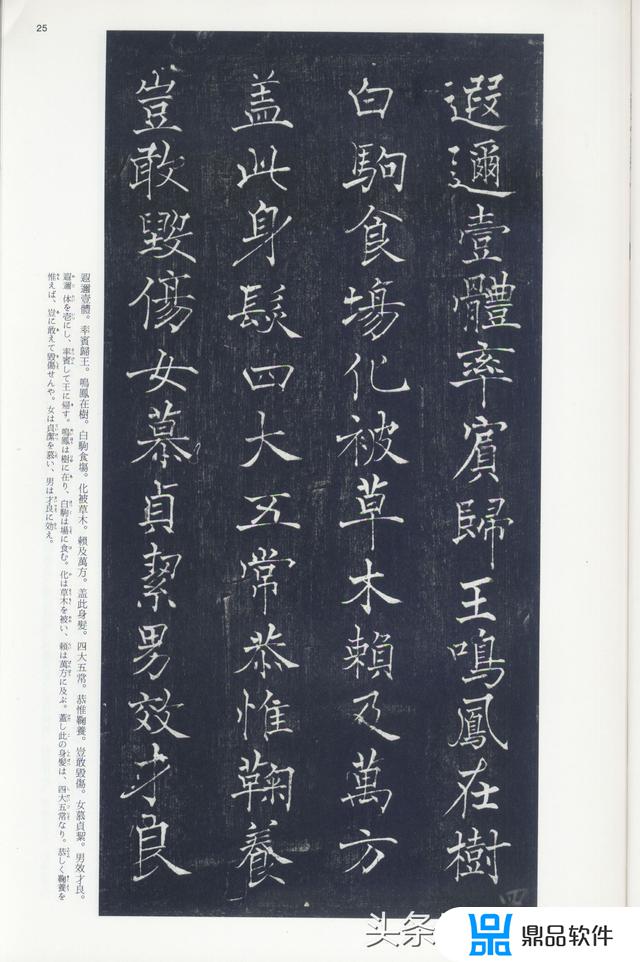 25
遐邇壹體率賓歸王鳴鳳在樹
白駒食場化被草木賴及萬方
盖此身髮四大五常恭惟鞠養
豈敢毀傷女慕貞絜男效才良
四
遐邇壹體。率賓歸王。鳴鳳在樹。白駒食場。化被草木。賴及萬方。盖此身髮。四大五常。恭惟鞠養。豈敢毀傷。女慕貞絜。男效才良。
遐邇 体を壱にし、率賓して王に帰す。鳴鳳は樹に在り、白駒は場に食む。化は草木を被い、賴は萬方に及ぶ。蓋し此の身髪は、四大五常なり。恭しく鞠養を
惟えば、豈に敢えて毀傷せんや。女は貞潔を慕い、男は才良に効え。
头条
鼎品软件